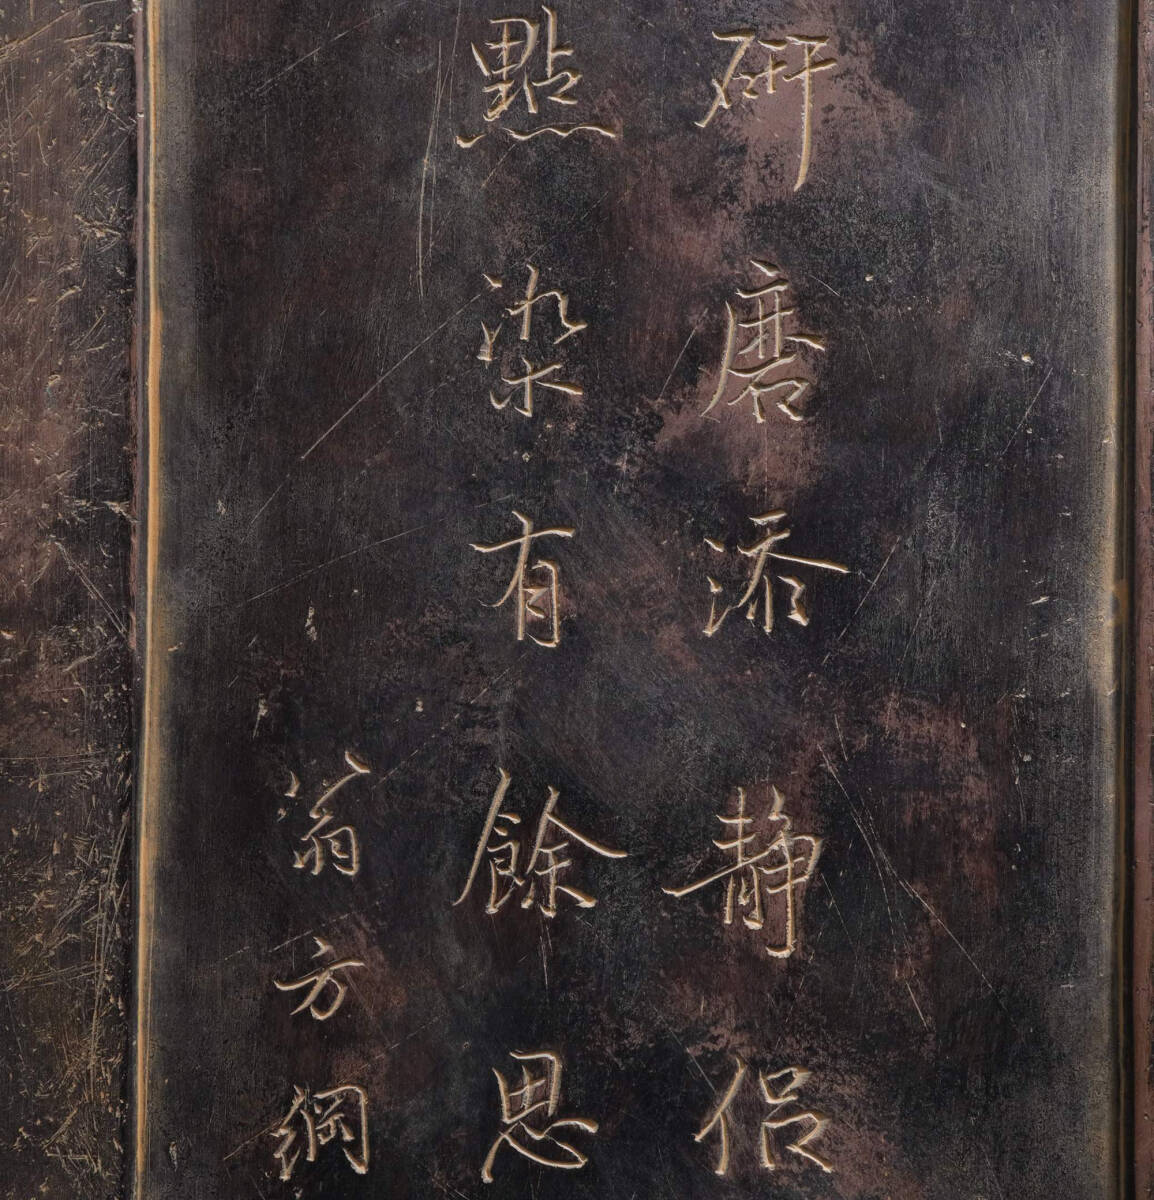 研磨添静侣
點染有餘思
翁方綱